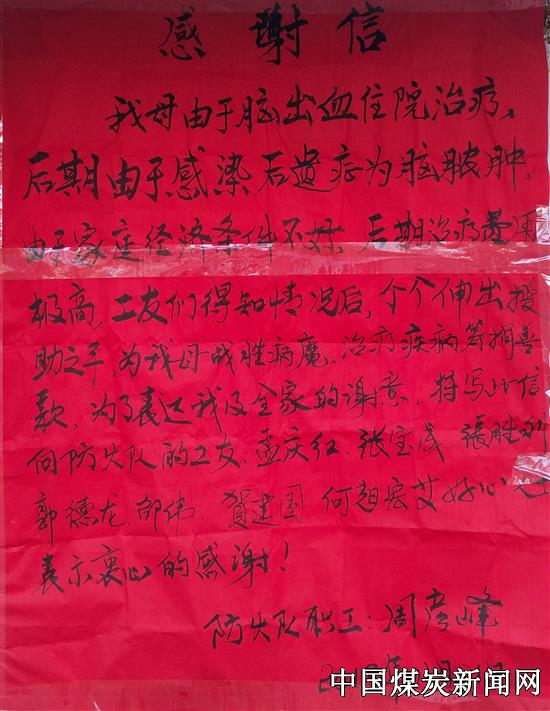 感谢信
我母由于脑出血住院治疗、
后期由于感染后遗症为脑脓肿、
由于家庭经济条件不好、后期治疗费用
极高，工友们得知情况后，个个伸出援
助之手 为我母战胜病魔、治疗疾病筹捐善
款，为了表达我及全家的谢意，特写此信
向防失队的工友：孟庆红、张宝成、張胜利
郭德龙、邵伟、贺建国、何超宏艾好心人
表示衷心的感谢！
防失队职工：周彦峰
中国煤炭新闻网